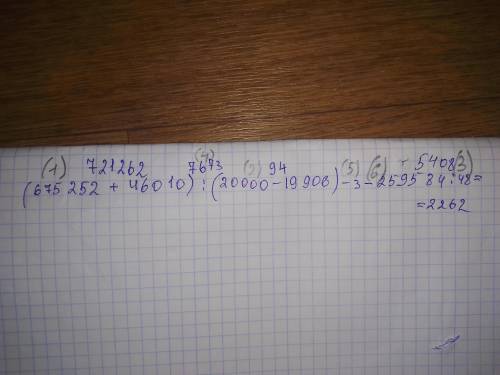 (1) 721262 7673 (4) (2) 94 (5) (6) 5408 (3)
(675252 + 46010) : (20000 - 19906) - 3 - 259584 : 48 =
= 2262